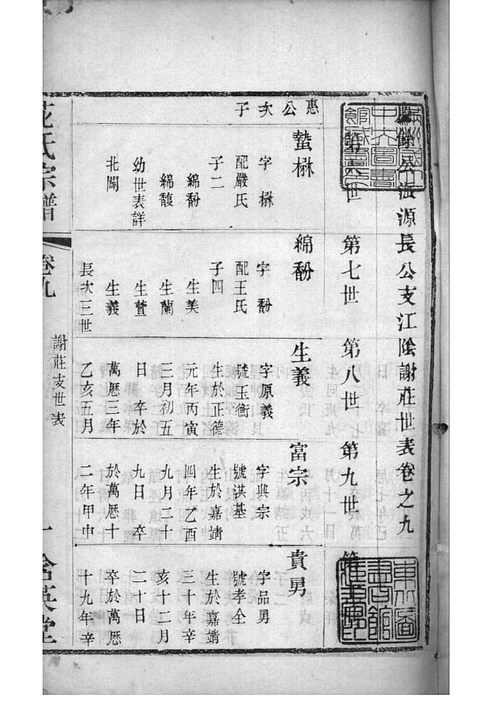 餘公浚源長公支江陰謝莊世表卷之九
第六世
第七世
第八世
第九世
第
惠公次子
蟄楙
字楙
配嚴氏
子二
綿
綿馥
幼世表詳
北闈
綿
字
配王氏
子四
生美
生蘭
生萱
生義
長次三世
生義
字原義
號玉衡
生於正德
元年丙寅
三月初五
日卒於
萬厯三年
乙亥五月
富宗
字興宗
號洪基
生於嘉靖
四年乙酉
九月二十
九日卒
於萬厯十
二年甲申
貴男
字品男
號孝全
生於嘉靖
三十年辛
亥十二月
二十日
卒於萬厯
十九年辛
氏宗譜
卷九
謝莊支世表
一
含英堂